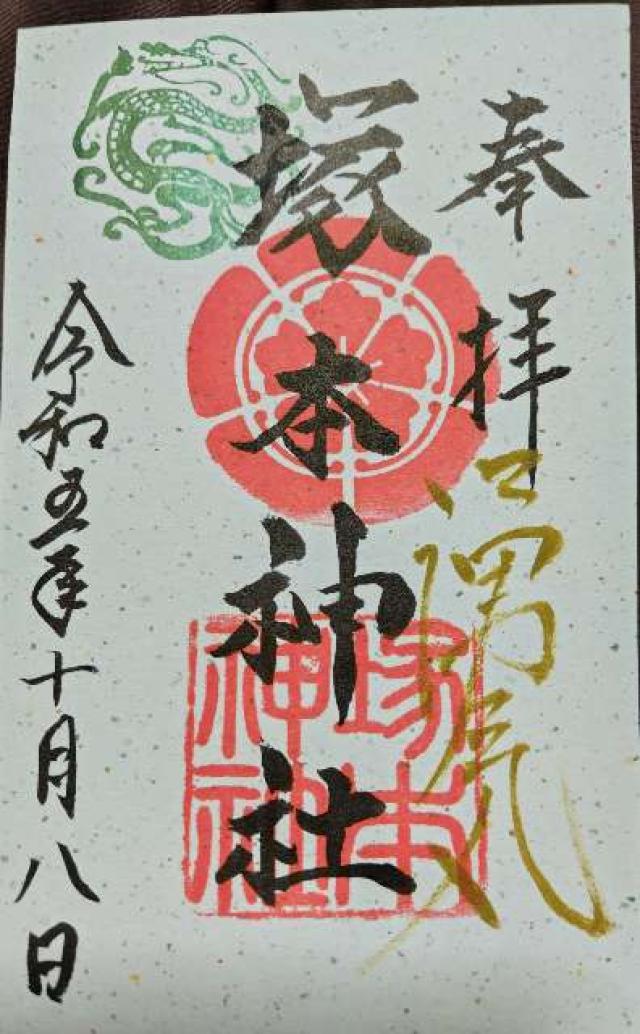 奉拝
塚本神社
塚本
神社
令和五年十月八日